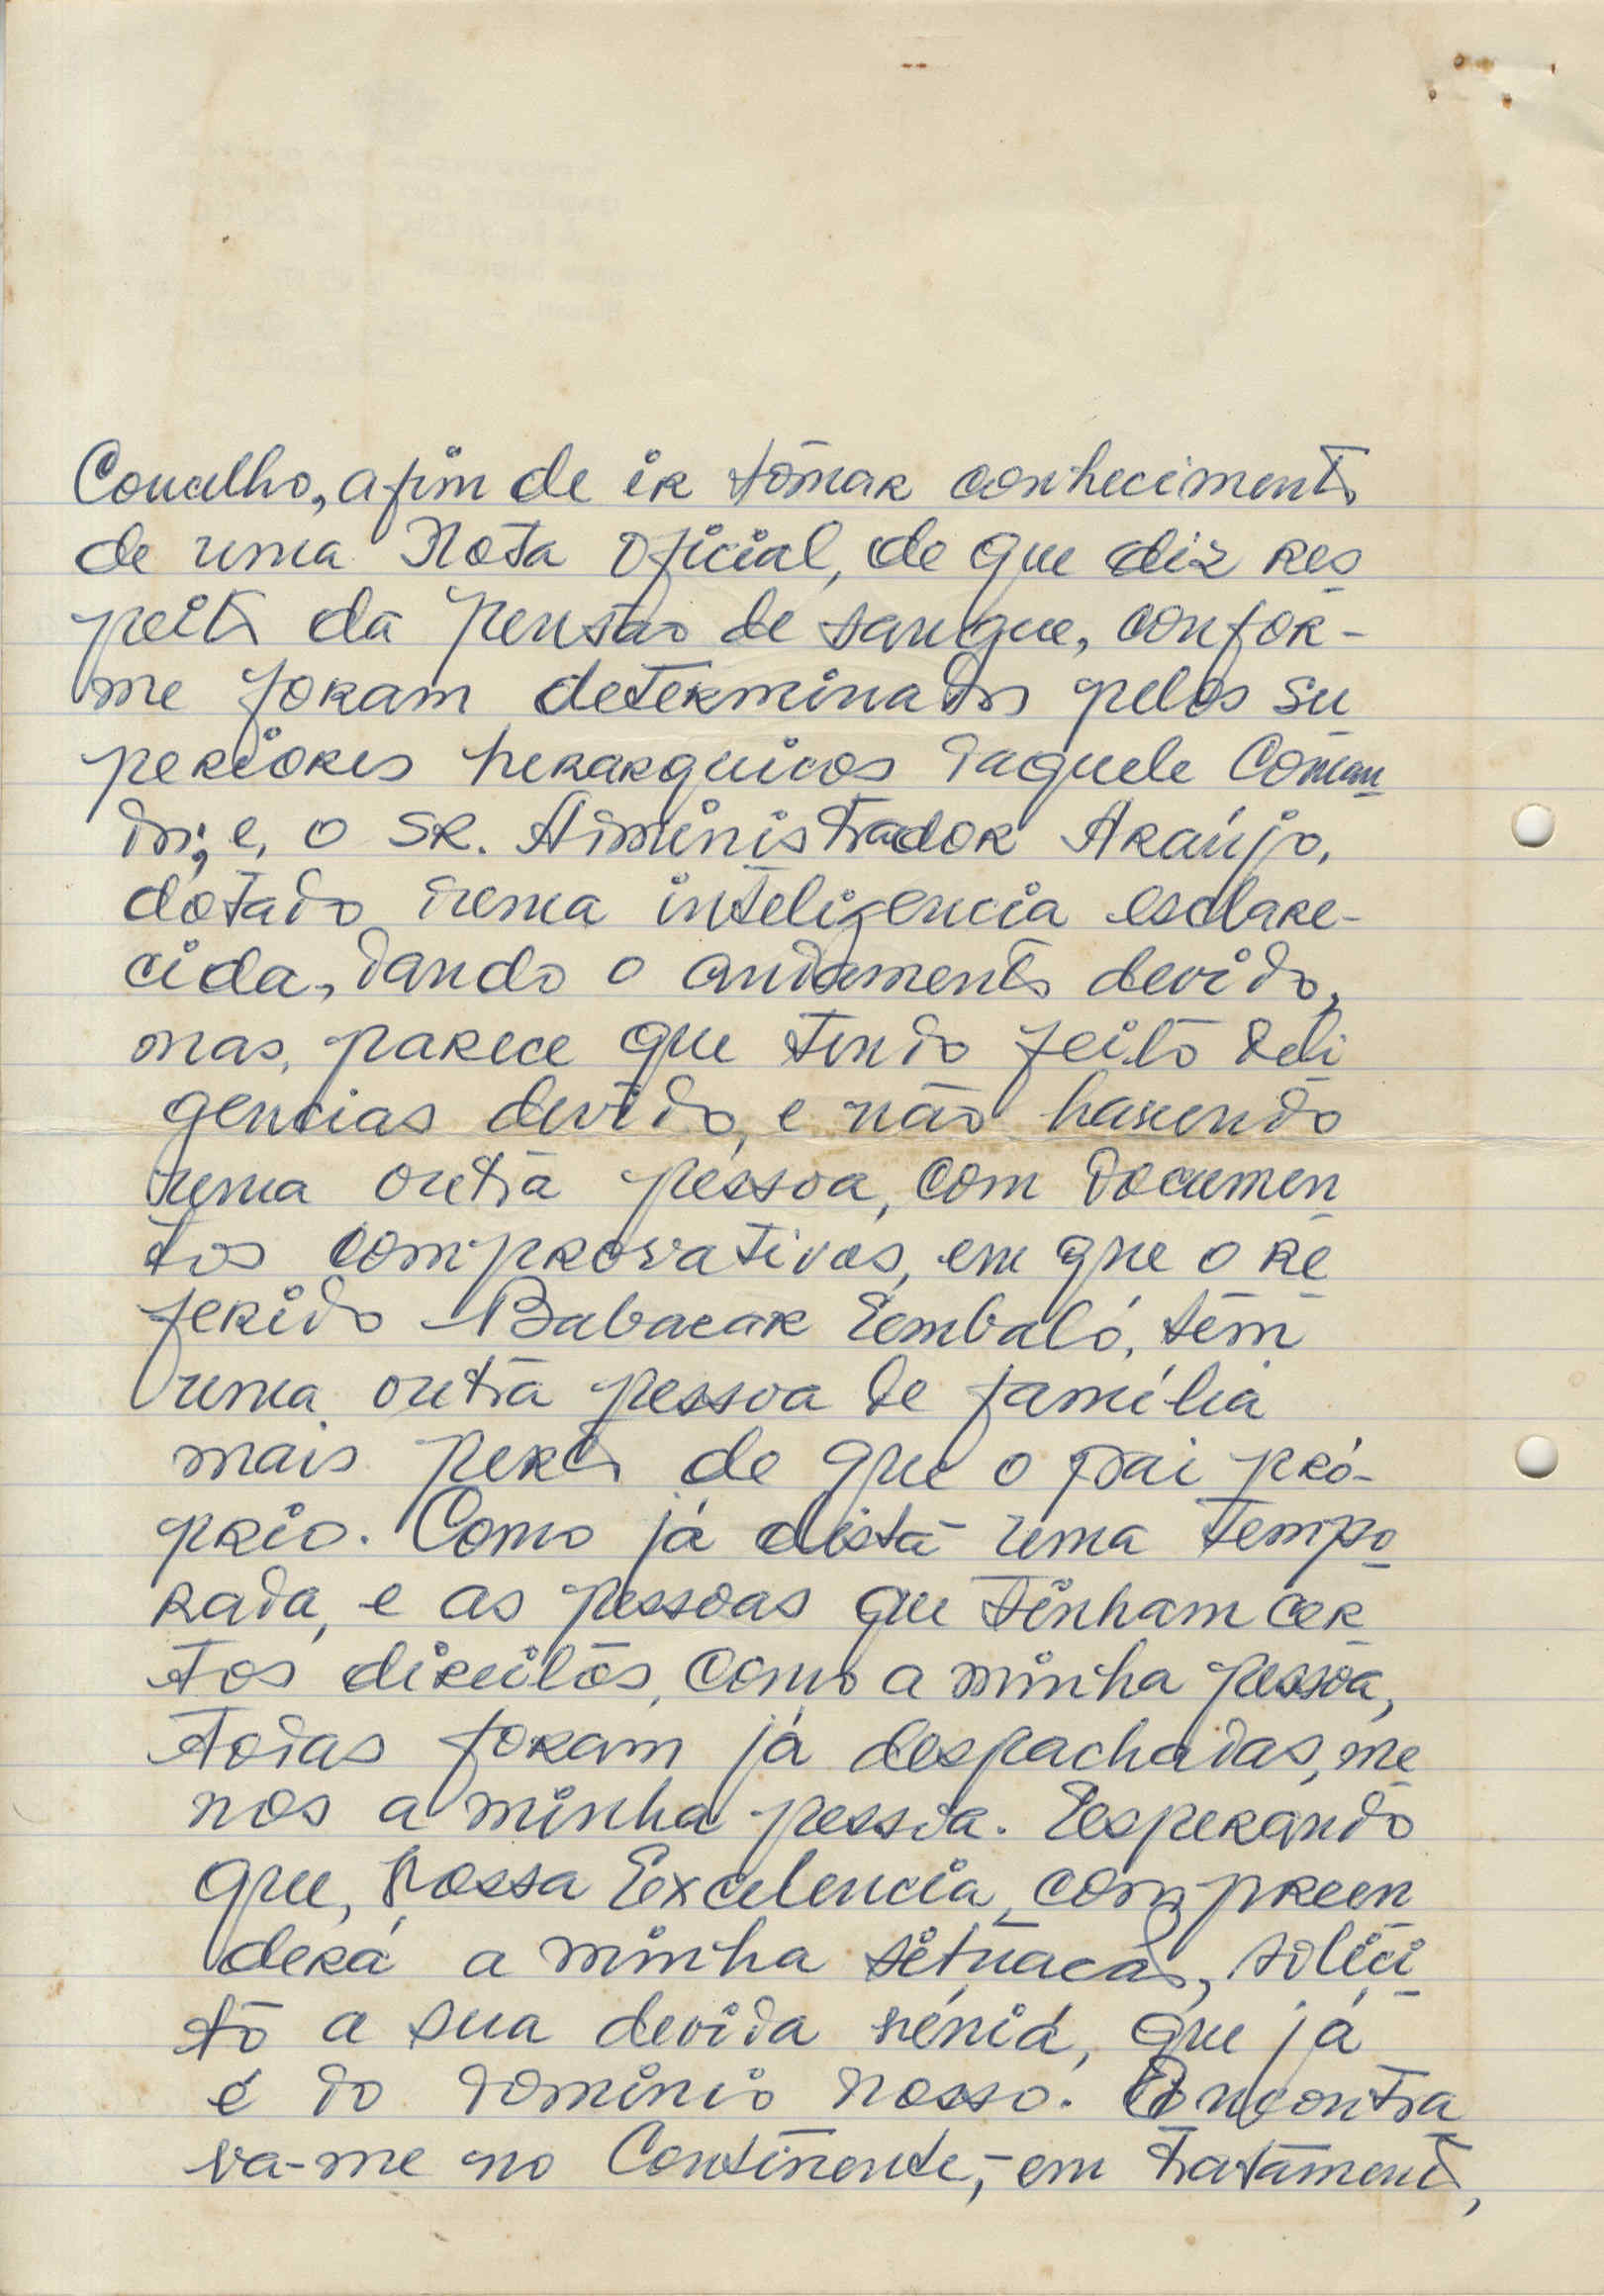 Concelho, afim de ir tomar conhecimento
de uma Nota Oficial, de que diz res
peito da Pensão de sangue, confor-
me foram determinados pelos su
periores herarquicos daquele Coman
do; e, o SR. Administrador Araújo,
dotado duma inteligencia esclare-
cida, dando o andamento devido,
mas, parece que tendo feito deli
gencias devido, e não havendo
uma outra pessoa, com documen
tos comprovativos, em que o re
ferido Babacar Embaló, tem
uma outra pessoa de família
mais perto de que o pai pró-
prio. Como já distá uma tempo
rada, e as pessoas que tinham cer
tos direitos, como a minha pessoa,
todas foram já despachadas, me
nos a minha pessoa. Esperando
que, Vossa Excelencia, compreen
derá a minha situacão, solici
to a sua devida vénia, que já
é do dominio nosso. Encontra
va-me no Continente, em tratamento,